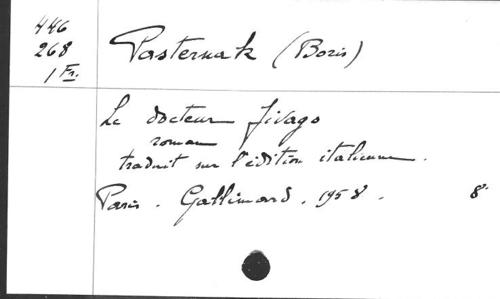 446
268
1 Fr.
Pasternak (Boris)
Le docteur Jivago
roman
traduit sur l'édition italienne.
Paris. Gallimard. 1958. 8°